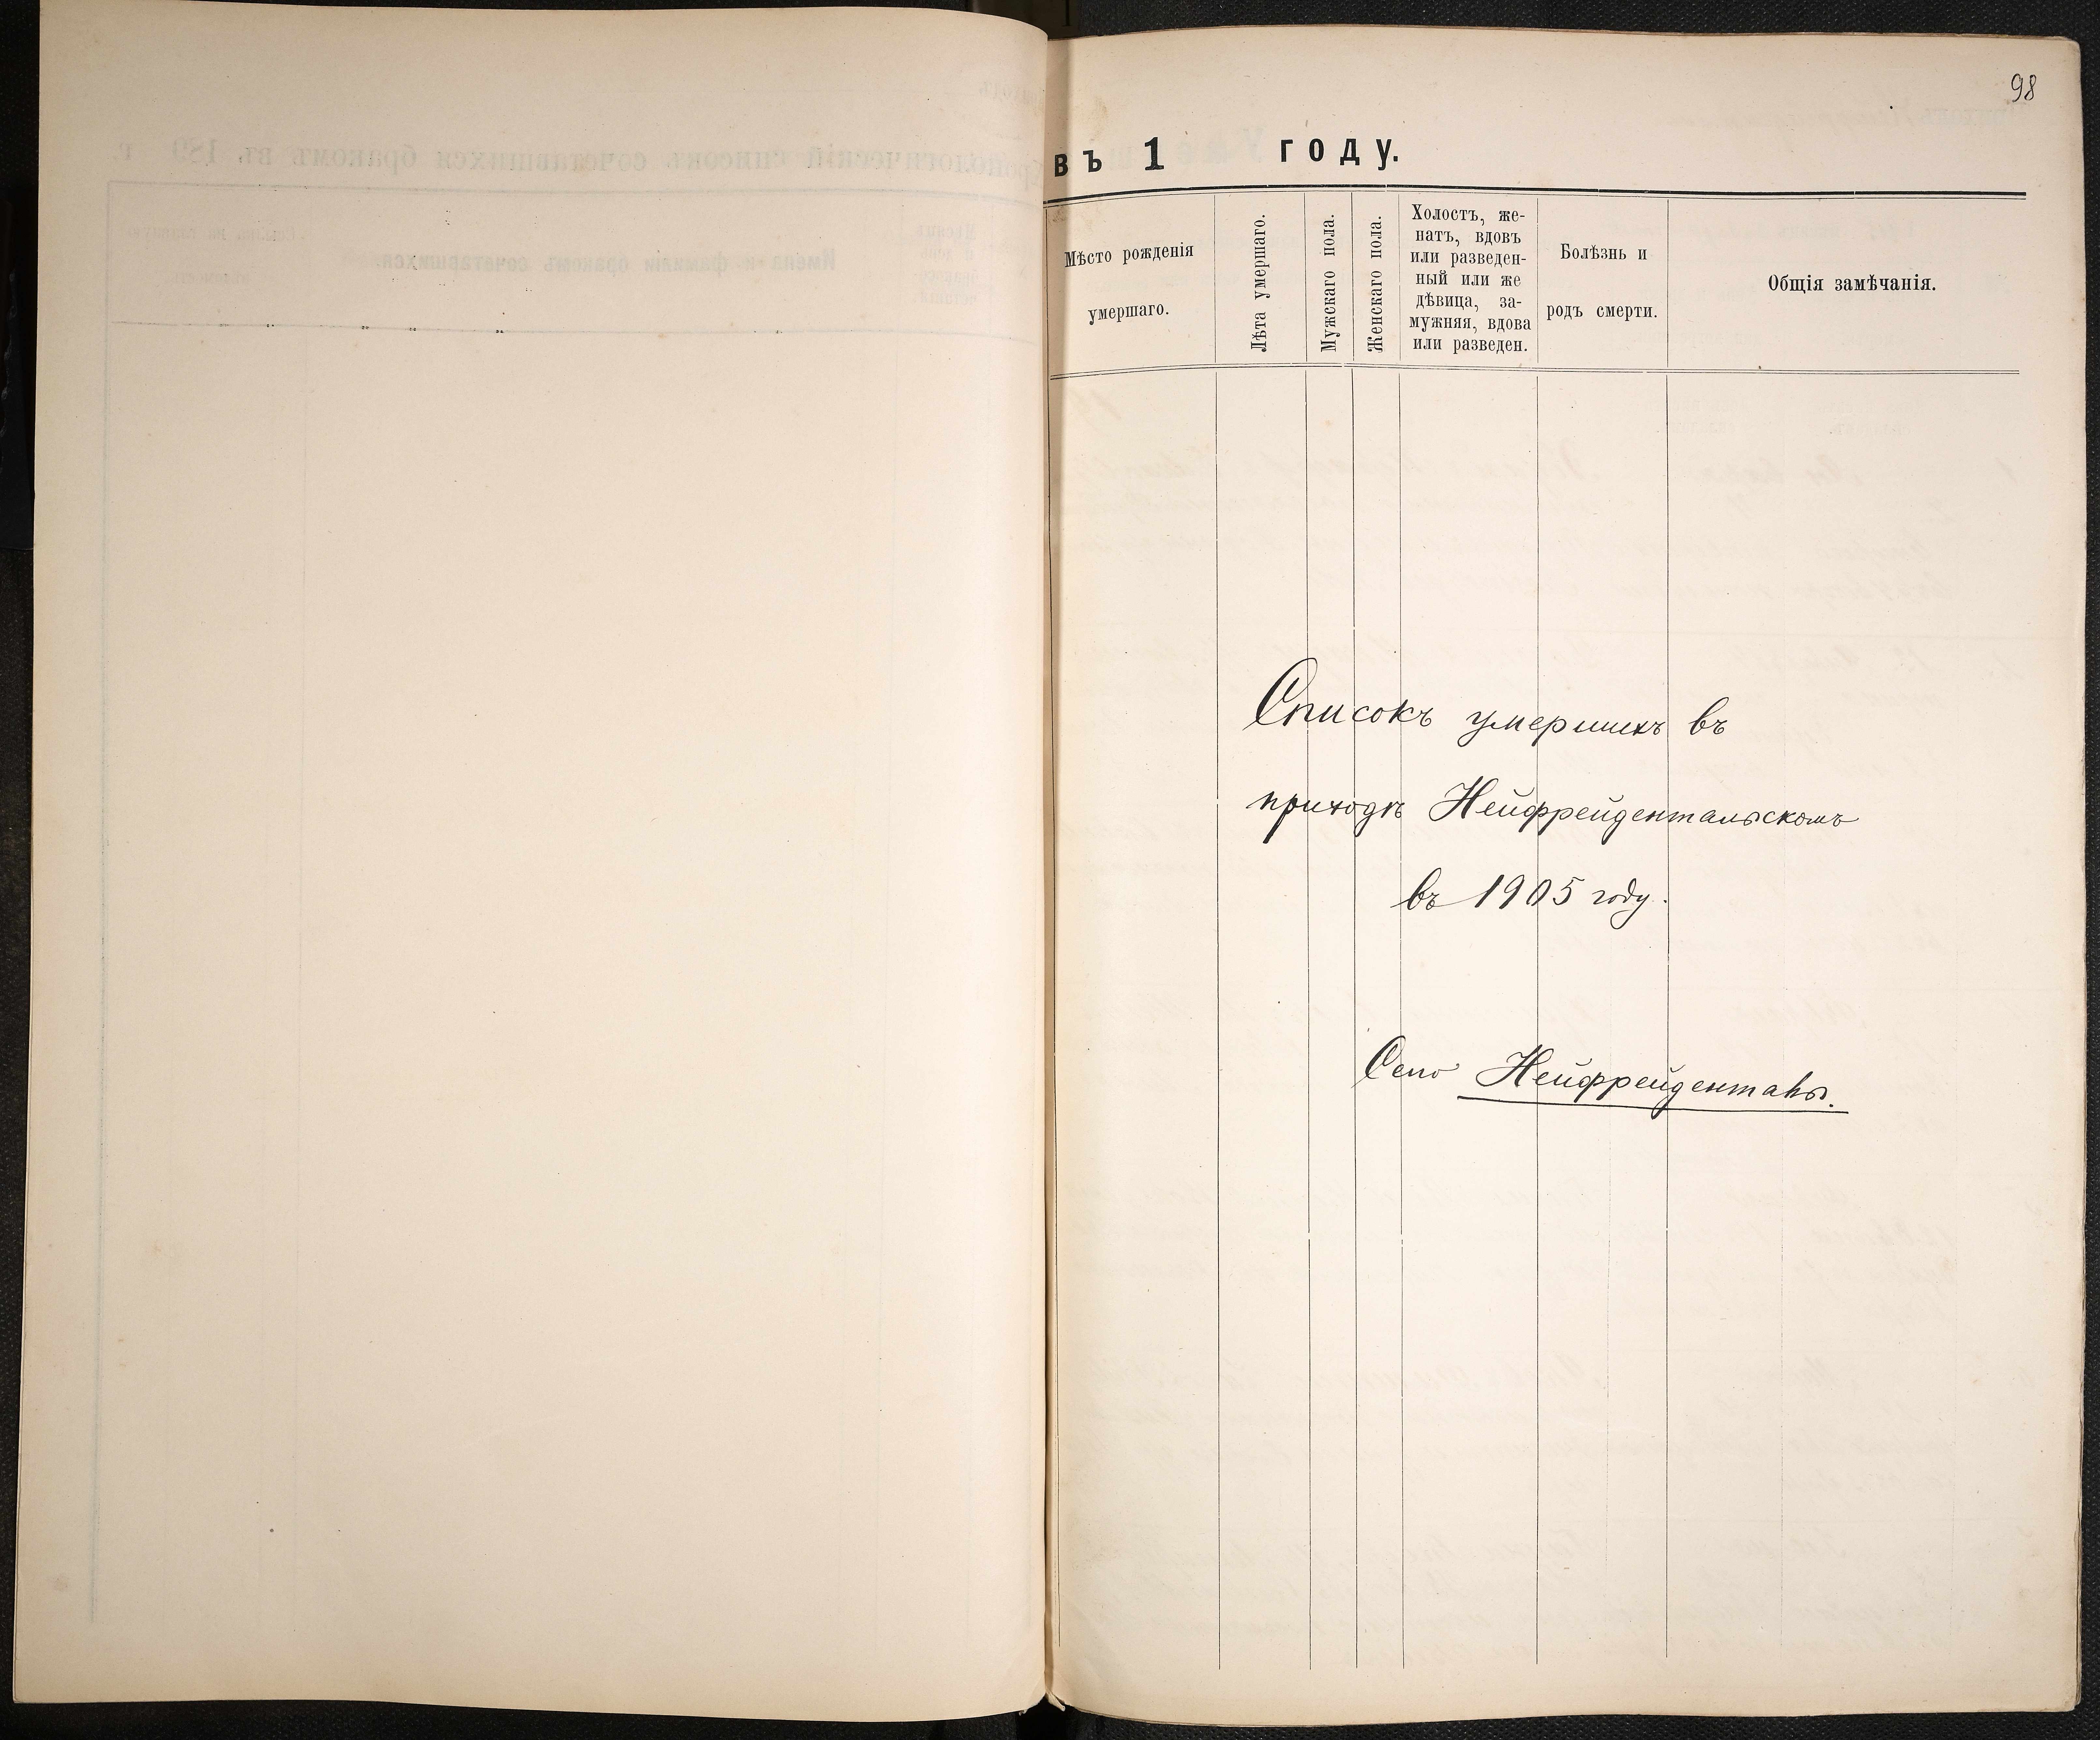 98
въ 1 году.
Мѣсто рожденія
умершаго.
Лѣта умершаго.
Мужскаго пола.
Женскаго пола.
Холостъ, же-
натъ, вдовъ
или разведен-
ный или же
дѣвица, за-
мужняя, вдова
или разведен.
Болѣзнь и
родъ смерти.
Общія замѣчанія.
Списокъ умершихъ въ
приходѣ Нейфрейдентальскомъ
въ 1905 году.
Село Нейфрейденталь.